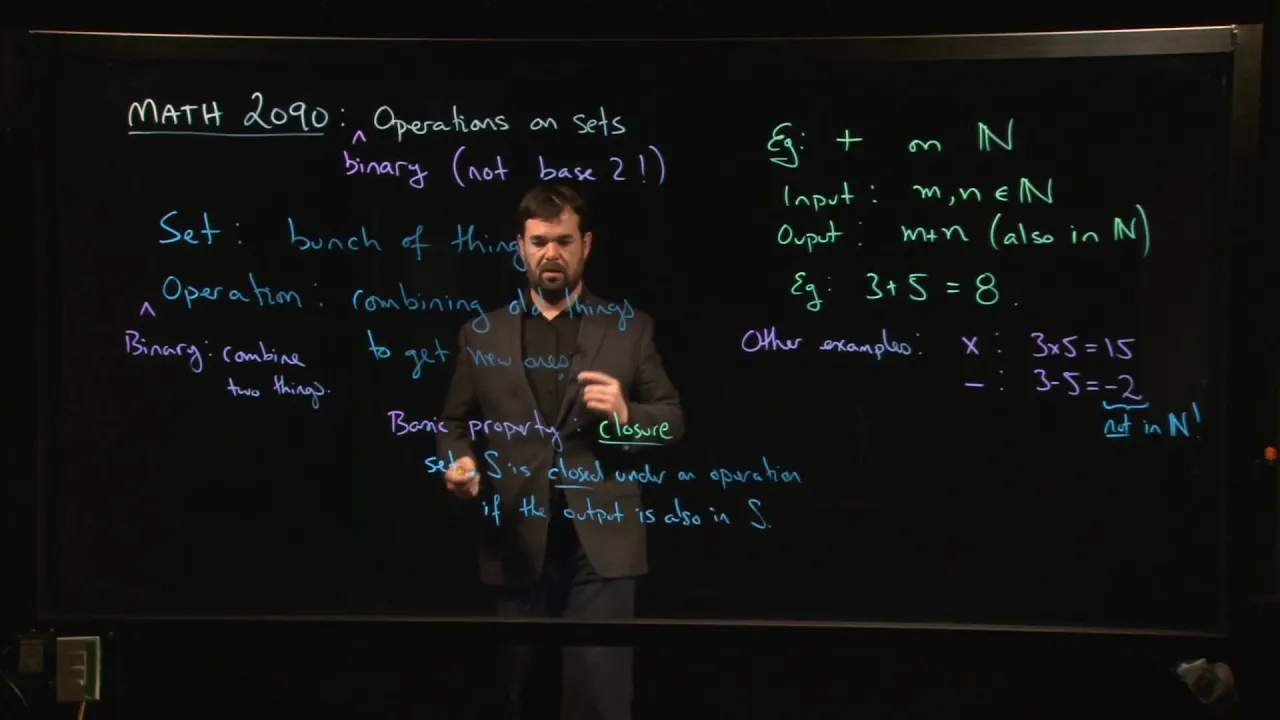 MATH 2090: Operations on sets
^
binary (not base 2!)
Set: bunch of things
Operation: combining old things
^
to get new ones
Binary: combine
two things.
Basic property: closure
set S is closed under an operation
if the output is also in S.
Eg: + on ℕ
Input: m,n ∈ ℕ
Ouput: m+n (also in ℕ)
Eg: 3+5 = 8.
Other examples: × : 3×5=15
− : 3-5=-2
not in ℕ!